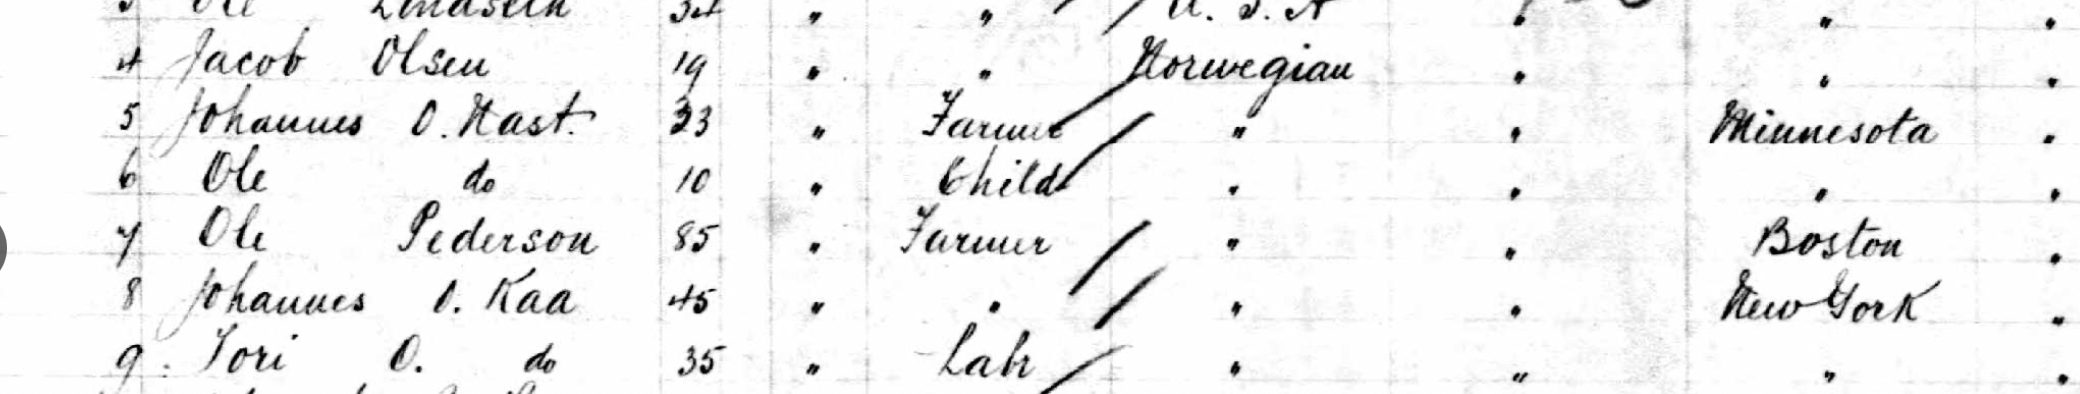 3 Ole Lindseth 34 " " U. S. A " " "
4 Jacob Olsen 19 " " Norwegian " " "
5 Johannes O. Hast. 33 " Farmer " " Minnesota "
6 Ole do 10 " Child " " " "
7 Ole Pederson 85 " Farmer " " Boston "
8 Johannes O. Kaa 45 " " " " New York "
9 Tori O. do 35 " Labr " " " "